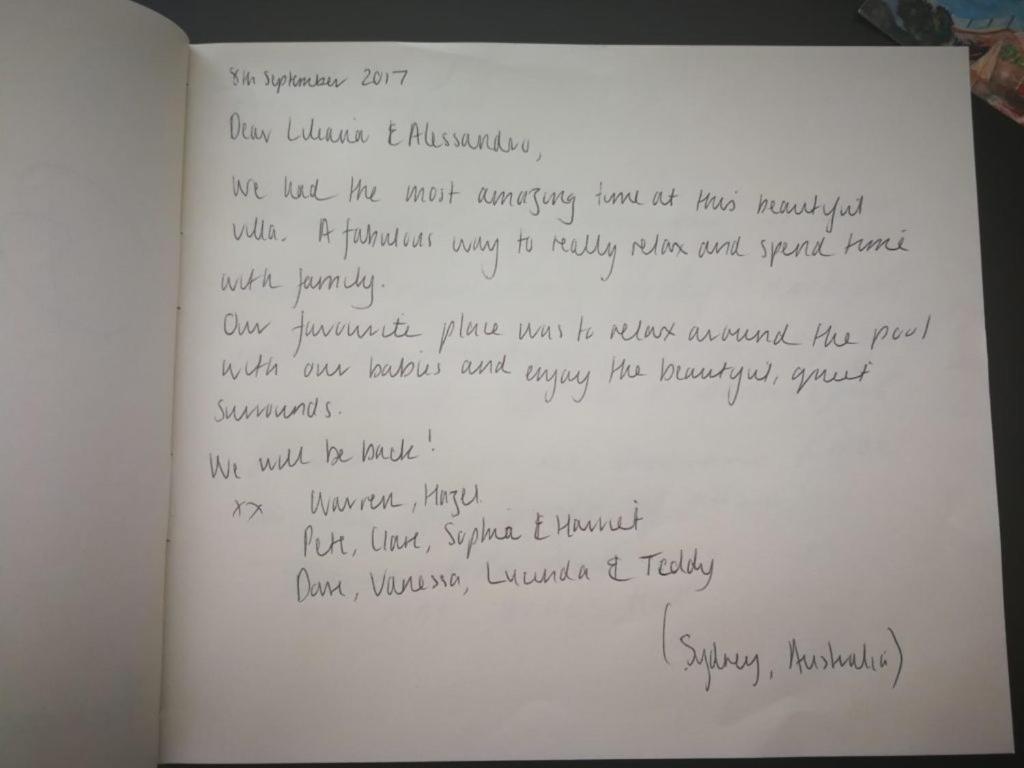 8th September 2017
Dear Liliana & Alessandro,
We had the most amazing time at this beautiful
villa. A fabulous way to really relax and spend time
with family.
Our favourite place was to relax around the pool
with our babies and enjoy the beautiful, quiet
surrounds.
We will be back!
xx Warren, Hazel
Pete, Clare, Sophia & Harriet
Dave, Vanessa, Lucinda & Teddy
(Sydney, Australia)